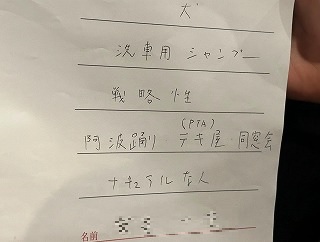 犬
洗車用 シャンプー
戦略性
(PTA)
阿波踊り テキ屋・同窓会
ナチュラルな人
名前